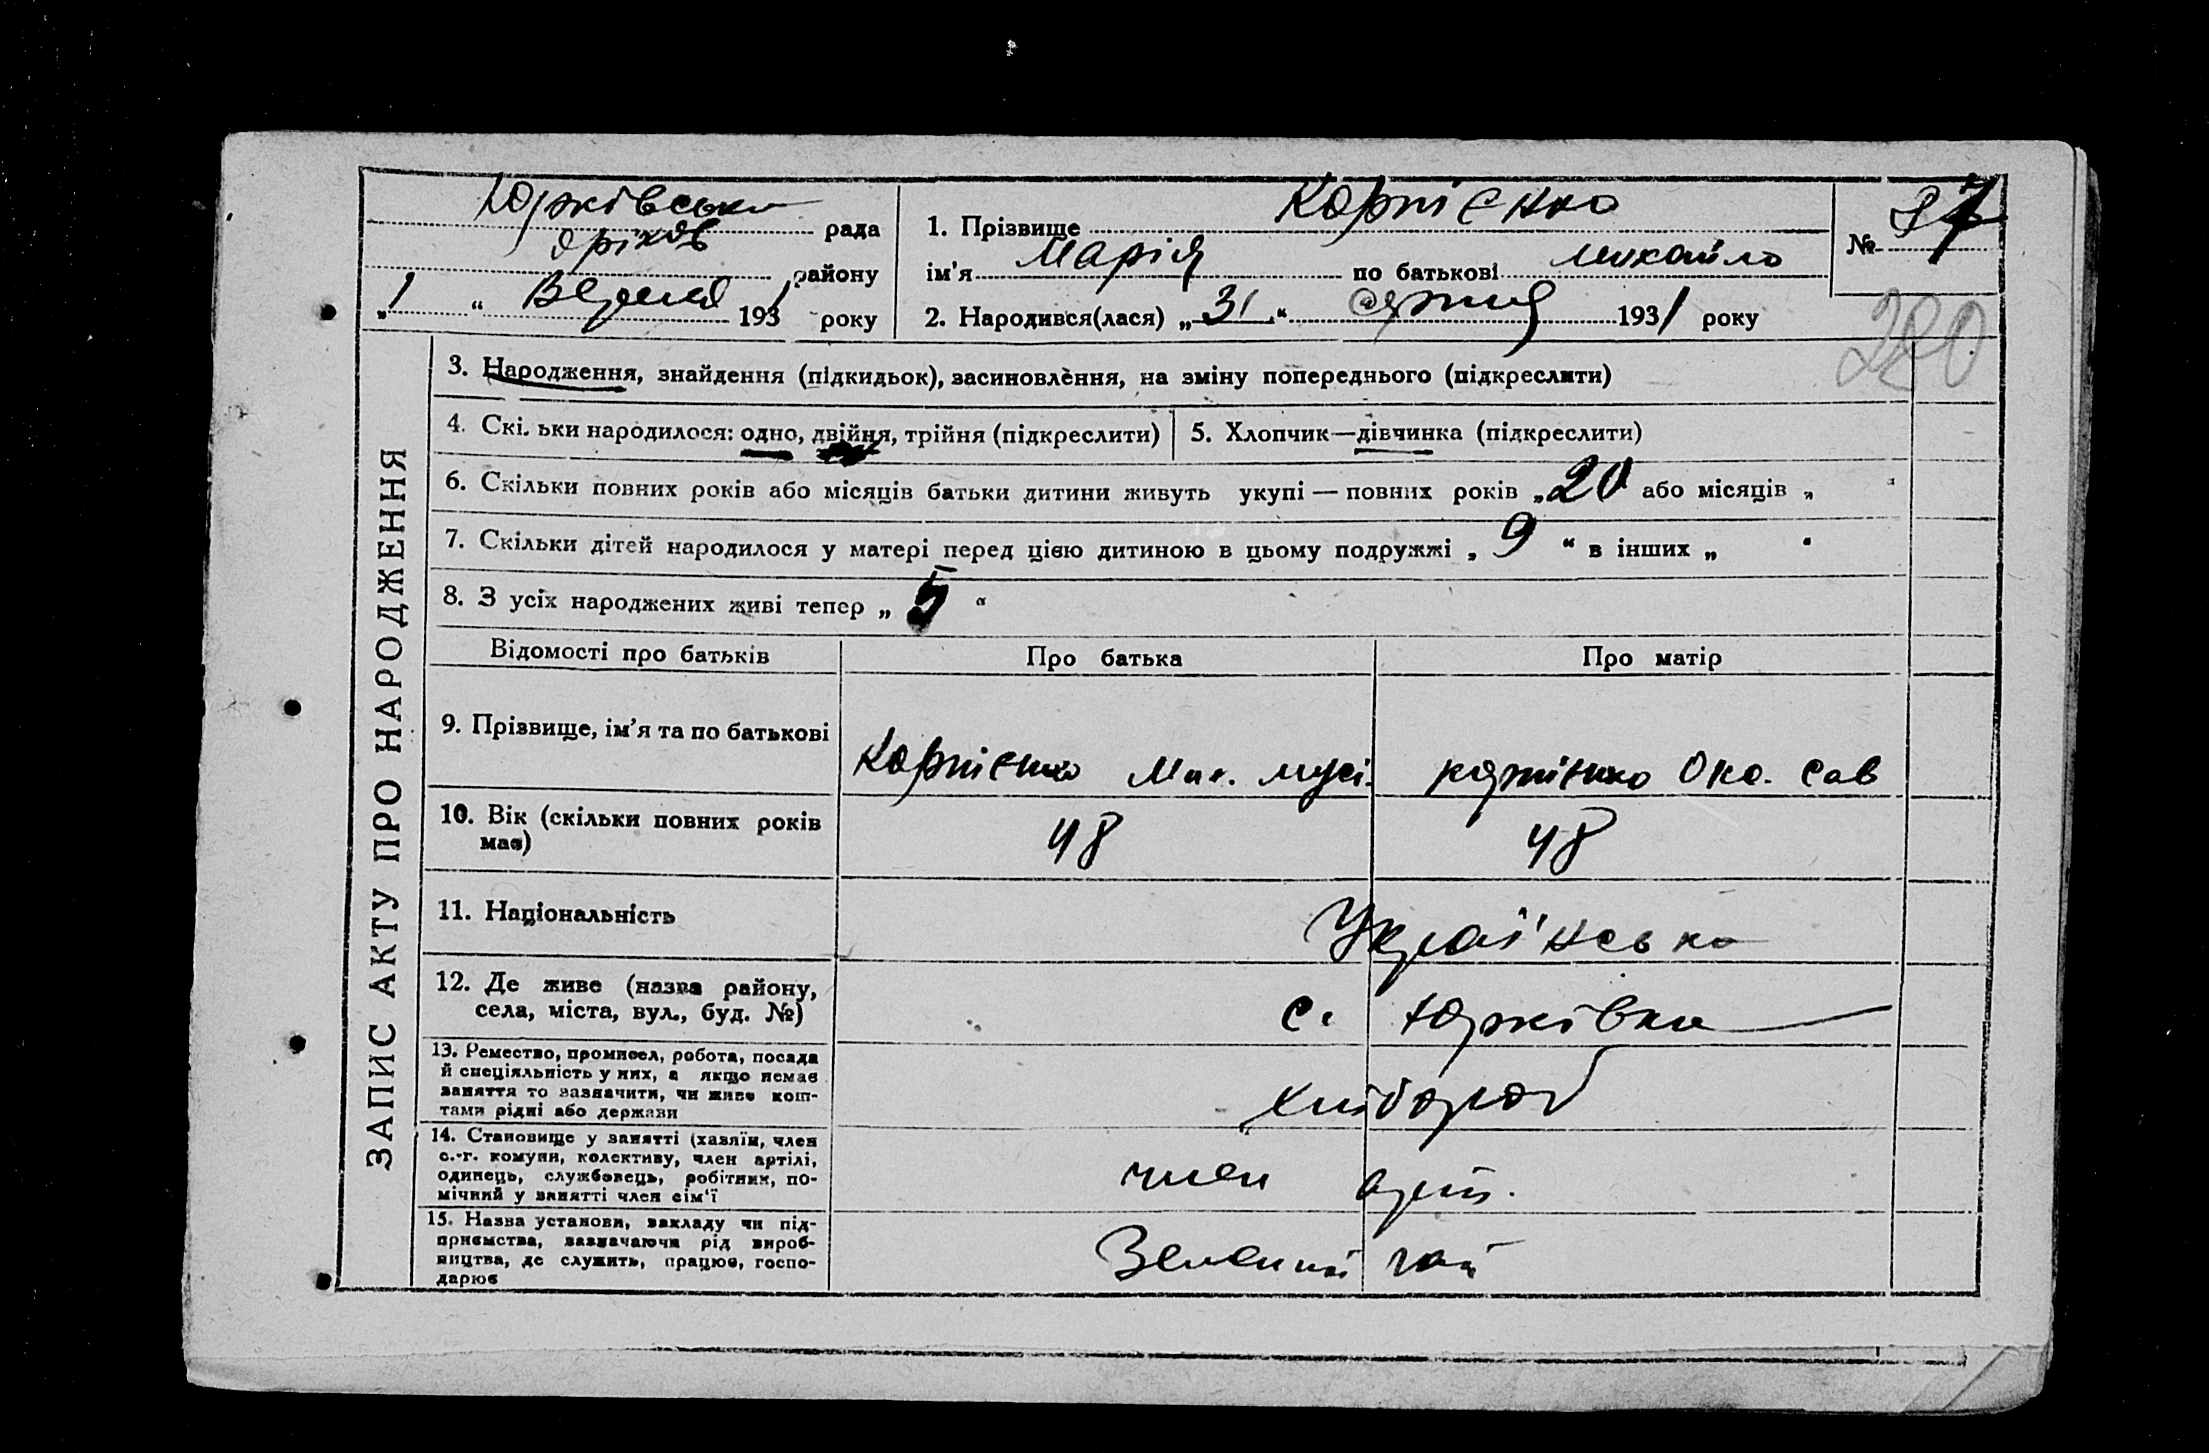 Юрківська рада
Оріхів району
„ 1 “ Вересня 1931 року
1. Прізвище Корнієнко
ім'я Марія по батькові Михайло
2. Народився(лася) „ 31 “ серпня 1931 року
№ 87
280
ЗАПИС АКТУ ПРО НАРОДЖЕННЯ
3. Народження, знайдення (підкидьок), засиновлення, на зміну попереднього (підкреслити)
4. Скільки народилося: одно, двійня, трійня (підкреслити)
5. Хлопчик—дівчинка (підкреслити)
6. Скільки повних років або місяців батьки дитини живуть укупі — повних років „ 20 “ або місяців „ “
7. Скільки дітей народилося у матері перед цією дитиною в цьому подружжі „ 9 “ в інших „ “
8. З усіх народжених живі тепер „ 5 “
Відомості про батьків Про батька Про матір
9. Прізвище, ім'я та по батькові Корнієнко Мих. Мусі. Корнієнко Окс. Сав
10. Вік (скільки повних років
має) 48 48
11. Національність Українська
12. Де живе (назва району,
села, міста, вул., буд. №) с. Юрківка
13. Ремество, промисел, робота, посада
й спеціяльність у них, а якщо немає
заняття то зазначити, чи живе кош-
тами рідні або держави
хлібороб
14. Становище у занятті (хазяїн, член
с.-г. комуни, колективу, член артілі,
одинець, службовець, робітник, по-
мічний у занятті член сім'ї
член арт.
15. Назва установи, закладу чи під-
приємства, зазначаючи рід вироб-
ництва, де служить, працює, госпо-
дарює
Зелений гай